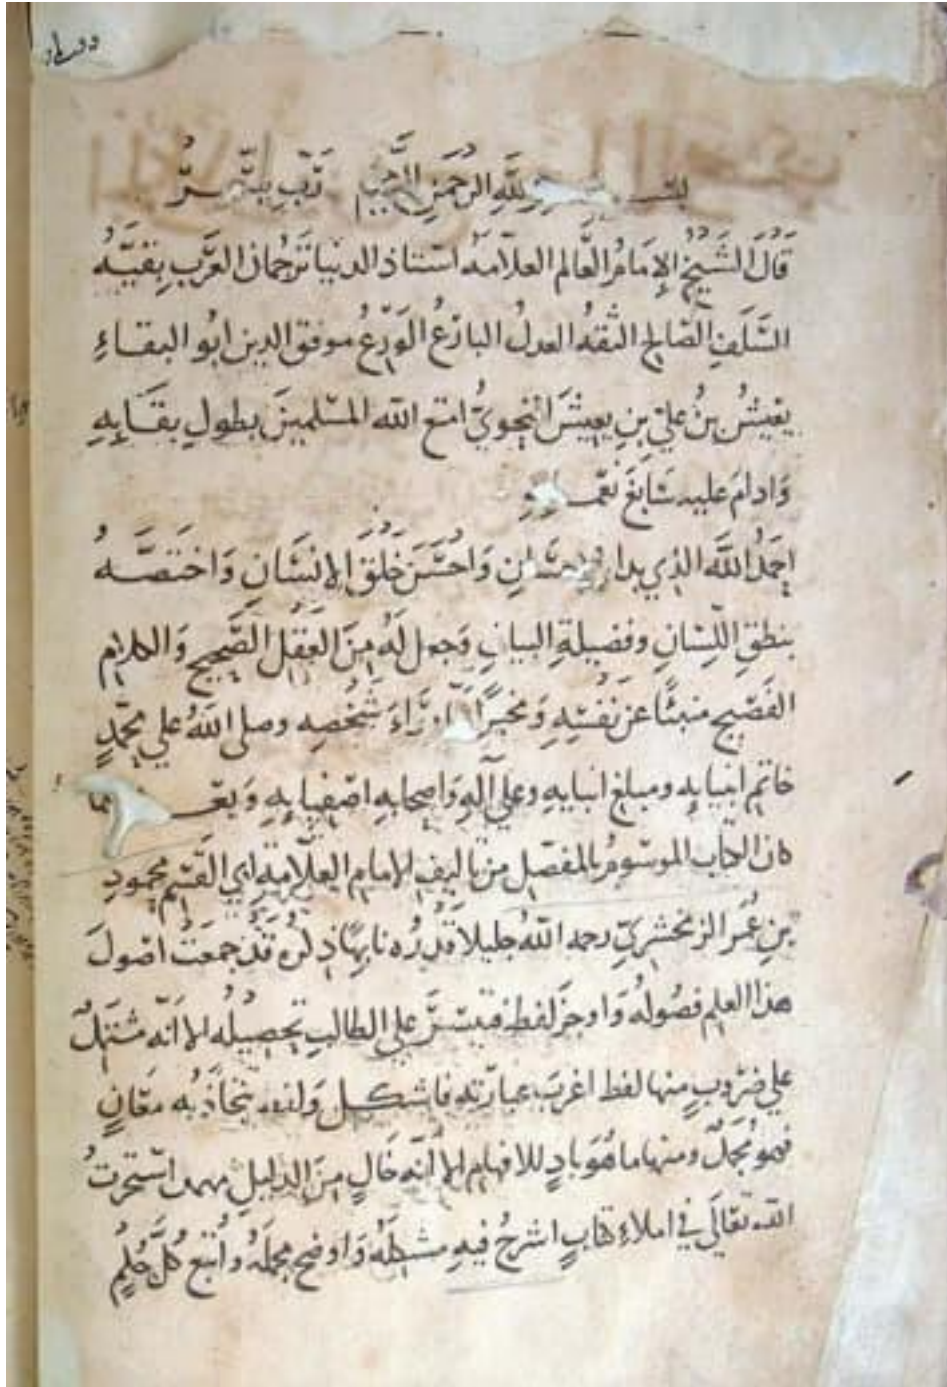 بسم الله الرحمن الرحيم رب يسر
قَالَ الشَّيْخُ الإِمَامُ العَّالِم العلاَّمَةُ استاذ الدنيا تَرجُمان العَرَب بِقيَّةُ
السَّلَفِ الصَّالِح الثقهُ العدلُ البارعُ الوَرِعُ موفق الدين ابُو البقاءِ
يعَيشُ بنُ عليّ بنِ يعيشَ النَّحويُّ امتع الله المسلمينَ بطولِ بقَايِهِ
وَادامَ عليه سَابغَ نعمـ
احمَدُ اللَّهَ الذي بدا بالاحسَانِ وَاحْسَنَ خَلْقَ الإنسَانِ وَاختصَّـهُ
بنطقِ اللِّسَانِ وفضيلةِ البيانِ وَجعل لَهُ مِنَ العَقْلِ الصَّحِيحِ وَالكلامِ
الفَصْيح منبئًا عَن نفْسِهِ وَمخبرًا عمَّا ورَّاءَ شَخْصِه وصلى اللهُ علي محمَّدٍ
خاتم انبيايِه ومبلغ انبايه وعلي آلهِ وَاصحابهِ اصْفيايِهِ وَبعـ لما
كان الكتاب الموسُومُ بالمفصّل من تاليف الإمام العلّامة ابي القسم محمودِ
بنِ عُمَر الزمخشريّ رحمه اللهُ جليلاً قدْرُه نابِهًا ذِكرُه قدْ جمعَت اصُولَ
هذا العلم فصُولُهُ وَاوجزَ لفظه فتيسَّرَ على الطالبِ تحصِيلُه الا انّه مشتملٌ
علي ضرُوبٍ منها لفظ اغربَ عبارَته فاشكـل ولفظ تتجاذَبُه معَانٍ
فهو مُجملٌ ومنها ما هُوَ بادٍ للافهام إلا أنّه خَالٍ منَ الدليلِ مهمل استخرتُ
الله تعَالَي في املاءِ كتابٍ اشرحُ فيهِ مشكلَهُ وَاوضح مجملَهُ وَاُتبع كُلَّ حُكْمٍ